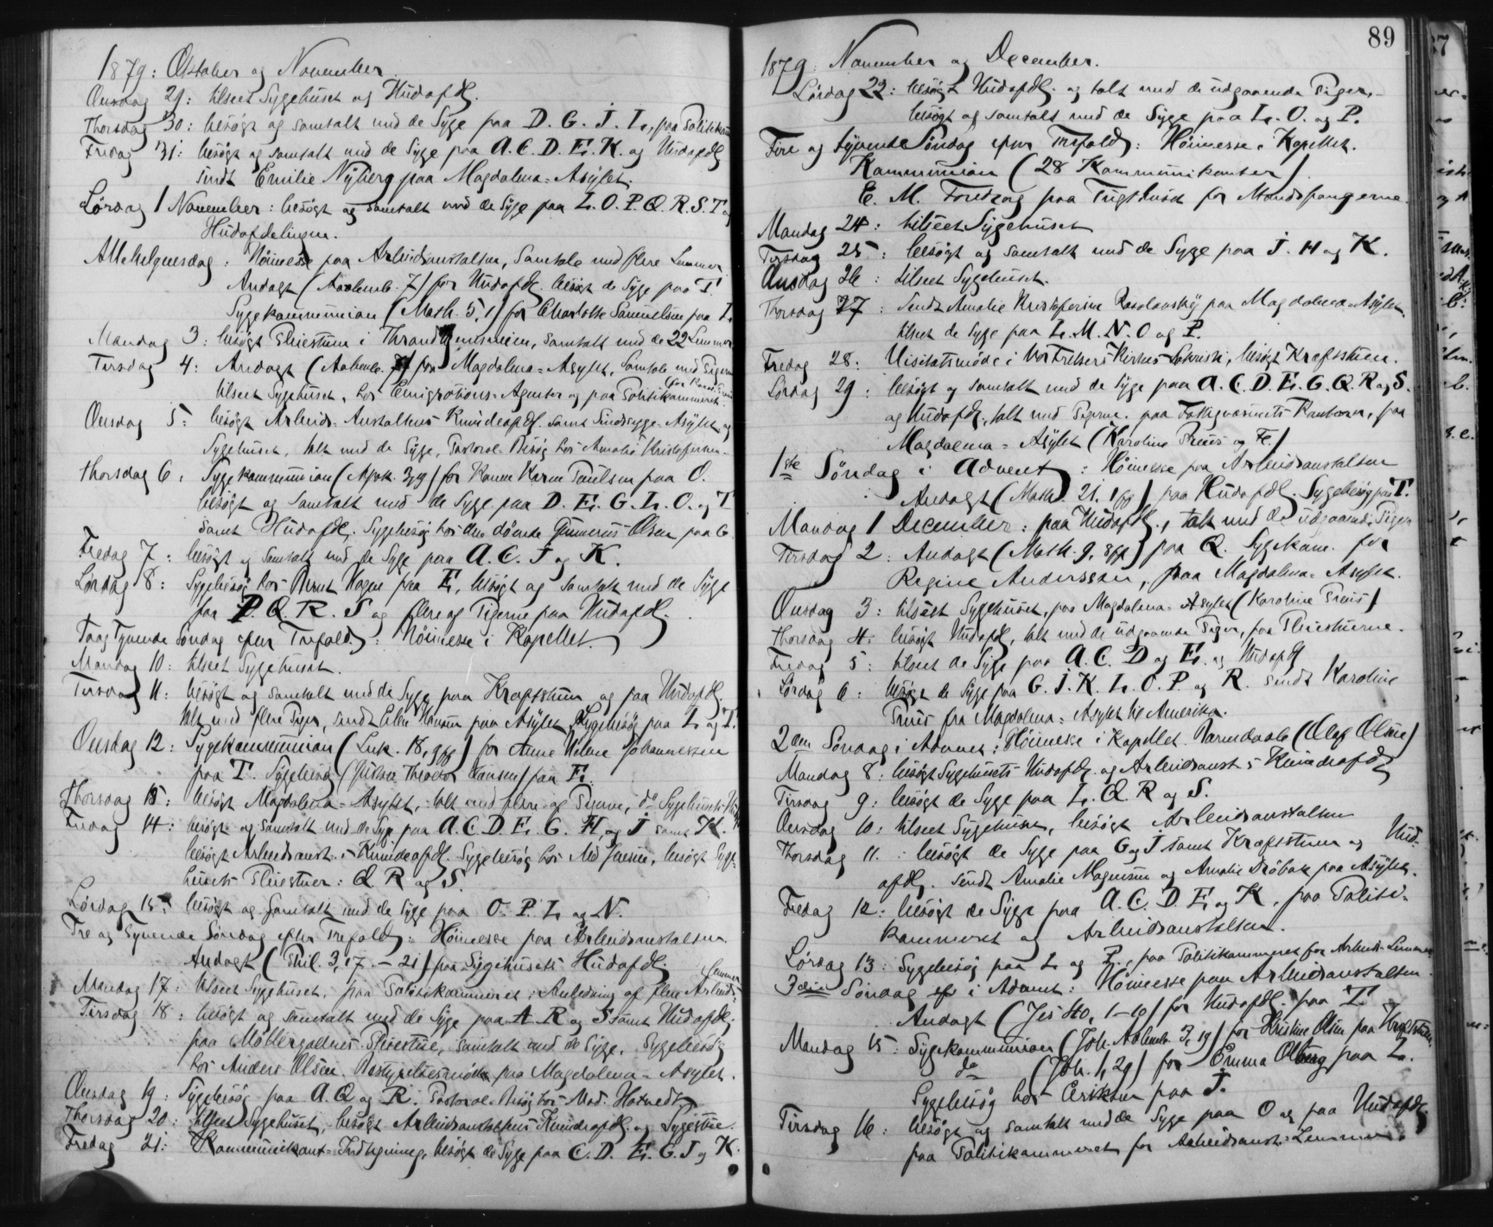 1879: Oktober og November
Onsdag 29: tilseet Sygehuset og Hudafdlg.
Thorsdag 30: besøgt og samtalt med de Syge paa D. G. J. L., paa Politikam
Fredag 31: besøgt og samtalt med de Syge paa A. C. D. E. K. og Hudafdlg
sendt Emilie Nyberg paa Magdalena-Asylet.
Lørdag 1 November: besøgt og samtalt med de Syge paa L. O. P. Q. R. S. T og
Hudafdelingen.
Allehelgensdag: Høimesse paa Arbeidsanstalten, Samtale med flere Lemmer
Andagt (Aabenb. 7) for Hudafdlg. besøgt de Syge paa T.
Sygekommunion (Math. 5, 1) for Charlotte Samuelsen paa L
Mandag 3: besøgt Pleiestuen i Thrandhjemsveien, samtalt med de 22 Lemmer
Tirsdag 4: Andagt (Aabenb. ) for Magdalena-Asylet, Samtale med Pigerne
tilseet Sygehuset, hos Emigrations-Agenter og paa Politikammeret
Onsdag 5: besøgt Arbeids-Anstaltens Kvindeafdlg. samt Sindssyge-Asylet og
Sygehuset, talt med de Syge, Pastoral-Besøg hos Amalie Kristofersen
Thorsdag 6: Sygekommunion ( 3, 19) for Karen Poulsen paa O.
besøgt og samtalt med de Syge paa D. E. G. L. O. og T
samt Hudafdlg. Sygebesøg hos den døende Gunerius Olsen paa G
Fredag 7: besøgt og samtalt med de Syge paa A. C. J og K.
Lørdag 8: Sygebesøg hos Bernt Hagen paa E, besøgt og samtalt med de Syge
paa P. Q. R. S og flere af Pigerne paa Hudafdlg.
To og Tyvende Søndag efter Trefoldg: Høimesse i Kapellet
Mandag 10: tilseet Sygehuset.
Tirsdag 11: besøgt og samtalt med de Syge paa Kræftstuen og paa Hudafdlg.
talt med flere Piger, sendt Hansen paa Asylet, Sygebesøg paa L og T.
Onsdag 12: Sygekommunion (Luk. 18, 9 fg) for Anne Helene Johannessen
paa T. Sygebesøg ( Theodor Hansen) paa E.
Thorsdag 13: besøgt Magdalena-Asylet, talt med flere af Pigerne, do Sygehusets
Fredag 14: besøgt og samtalt med de Syge paa A. C. D. E. G. H. og J samt K.
besøgt Arbeidsanst.s Kvindeafdlg. Sygebesøg hos , besøgt Syge-
husets Pleiestuer: Q R og S.
Lørdag 15: besøgt og samtalt med de Syge paa O. P. L og N.
Tre og Tyvende Søndag efter Trefoldg: Høimesse paa Arbeidsanstalten
Andagt (Phil. 3, 17 - 21) paa Sygehusets Hudafdlg
Mandag 17: tilseet Sygehuset, paa Politikammeret i Anledning af flere Arbeids-
Lemmer
Tirsdag 18: besøgt og samtalt med de Syge paa A R og S samt Hudafdlg
paa Møllergadens Pleiestue, samtalt med de Syge. Sygebesøg
hos Anders Olsen. Bestyrelsesmøde paa Magdalena-Asylet.
Onsdag 19: Sygebesøg paa A. Q og R. Pastoral-Besøg hos
Thorsdag 20: tilseet Sygehuset, besøgt Arbeidsanstaltens Kvindeafdlg. og Sygestue.
Fredag 21: Kommunikant-Indtegning, besøgt de Syge paa C. D. E. G. J og K.
89
1879: November og December.
Lørdag 22: besøgt Hudafdlg. og talt med de udgaaende Piger,
besøgt og samtalt med de Syge paa L. O. og P.
Fire og Tyvende Søndag efter Trefoldg: Høimesse i Kapellet.
Kommunion (28 Kommunikanter)
E. M. Foredrag paa Tugthuset for Mandsfangerne.
Mandag 24: tilseet Sygehuset
Tirsdag 25: besøgt og samtalt med de Syge paa J. H og K.
Onsdag 26: tilseet Sygehuset.
Thorsdag 27: Sendt Amalie Kristofersen paa Magdalena-Asylet
tilseet de Syge paa L. M. N. O og P.
Fredag 28: Visitatsmøde i Vor Frelsers Kirkes Sakristi, besøgt Kræftstuen.
Lørdag 29: besøgt og samtalt med de Syge paa A. C. D. E. G. Q. R og S.
og Hudafdlg., talt med Pigerne. paa Fattigvæsenets Kontorer, paa
Magdalena-Asylet (Karoline )
1ste Søndag i Advent: Høimesse paa Arbeidsanstalten
Andagt (Math. 21, 1 fg) paa Hudafdlg. Sygebesøg paa T.
Mandag 1 December: paa Hudafdlg., talt med de udgaaende Piger
Tirsdag 2: Andagt (Math. 9, 8 fg) paa Q. Sygekom. for
Regine Anderssen, paa Magdalena-Asylet.
Onsdag 3: tilseet Sygehuset, paa Magdalena-Asylet (Karoline )
Thorsdag 4: besøgt Hudafdlg, talt med de udgaaende Piger, paa Pleiestuerne.
Fredag 5: tilseet de Syge paa A. C. D og E. og Hudafdlg
Lørdag 6: besøgt de Syge paa G. J. K. L. O. P. og R. sendt Karoline
fra Magdalena-Asylet til Amerika.
2den Søndag i Advent: Høimesse i Kapellet. Barnedaab (Olaf Olsen)
Mandag 8: besøgt Sygehusets Hudafdlg. og Arbeidsanst.s Kvindeafdlg
Tirsdag 9: besøgt de Syge paa L. Q. R og S.
Onsdag 10: tilseet Sygehuset, besøgt Arbeidsanstalten
Thorsdag 11: besøgt de Syge paa G og J samt Kræftstuen og Hud-
afdlg. sendt Amalie Magnussen og Amalie Drøbak paa Asylet.
Fredag 12: besøgt de Syge paa A. C. D. E og K, paa Politi-
kammeret og Arbeidsanstalten.
Lørdag 13: Sygebesøg paa L og P., paa Politikammeret for Arbeids-Lemmer
3die Søndag i Advent: Høimesse paa Arbeidsanstalten.
Andagt (Jes 40, 1-10) for Hudafdlg. paa T
Mandag 15: Sygekommunion (Joh. Aabenb. 3, 19) for Kristine Olsen paa Kræftstuen.
do (Joh. 1, 29) for Emma Olberg paa L.
Sygebesøg hos Eriksen paa J.
Tirsdag 16: besøgt og samtalt med de Syge paa O og paa Hudafdlg
paa Politikammeret for Arbeidsanst.-Lemmer